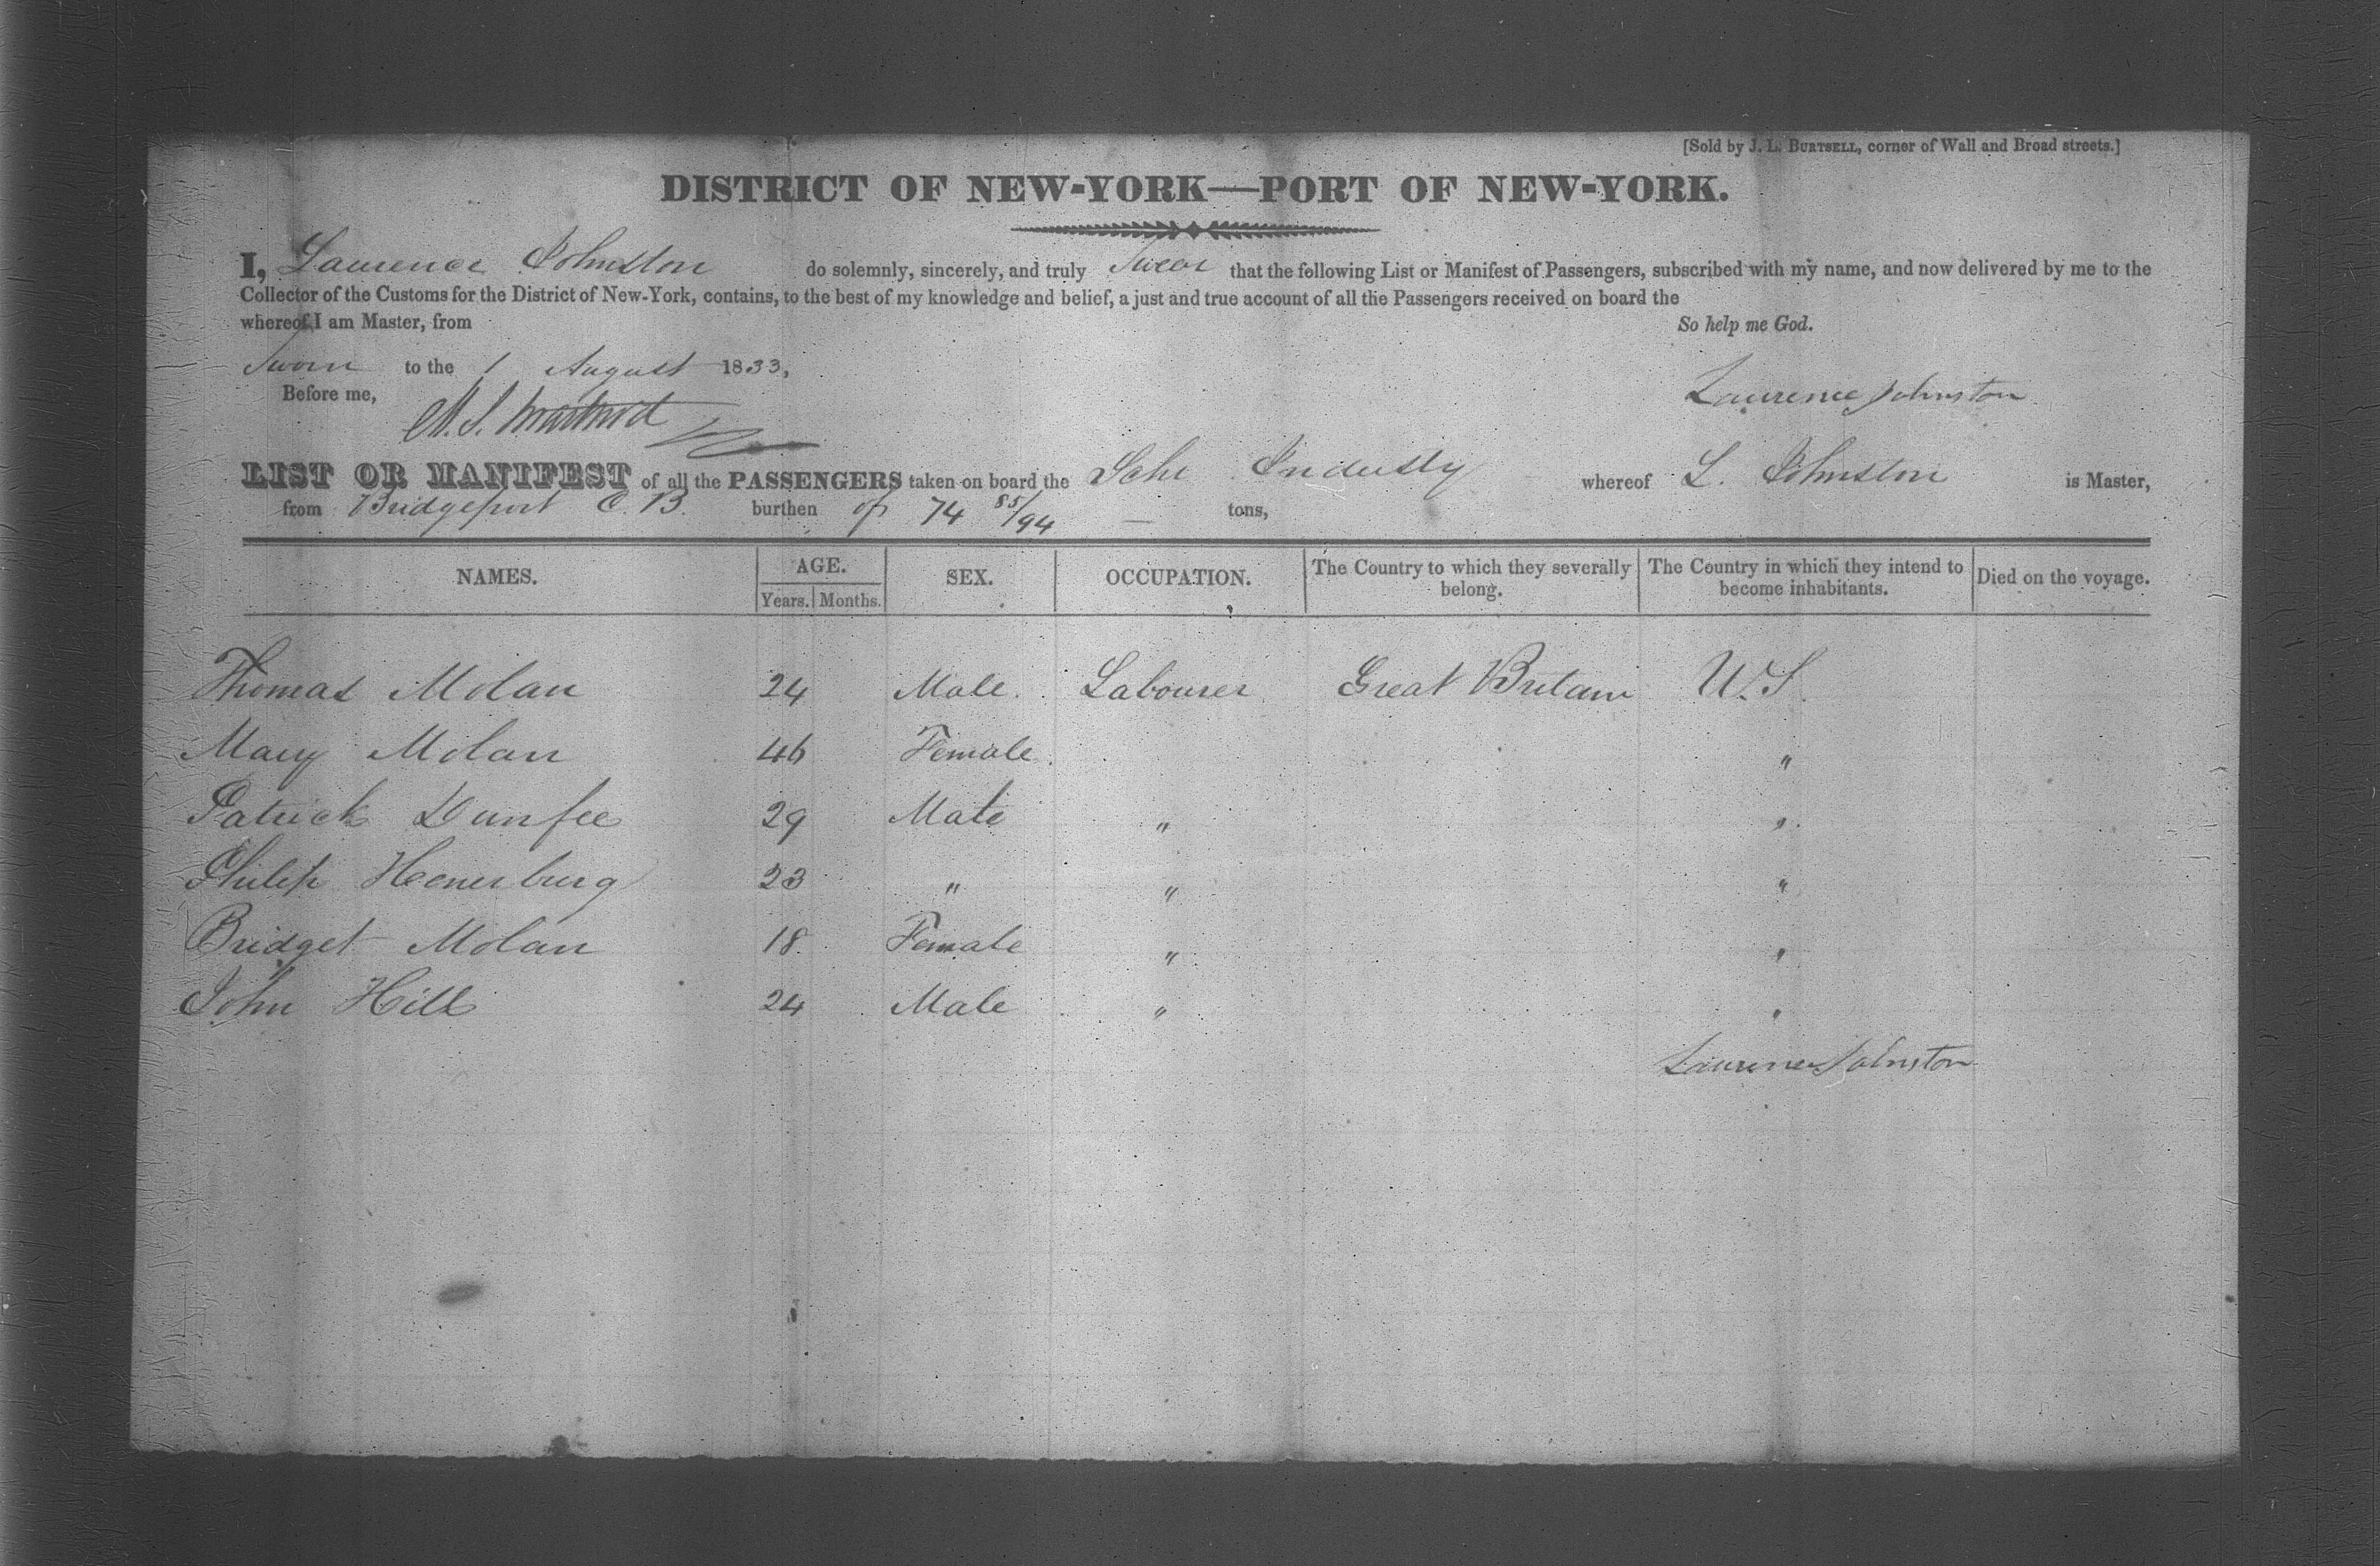 [Sold by J. L. BURTSELL, corner of Wall and Broad streets.]
DISTRICT OF NEW-YORK—PORT OF NEW-YORK.
I, Laurence Johnston do solemnly, sincerely, and truly Swear that the following List or Manifest of Passengers, subscribed with my name, and now delivered by me to the
Collector of the Customs for the District of New-York, contains, to the best of my knowledge and belief, a just and true account of all the Passengers received on board the
whereof I am Master, from So help me God.
Sworn to the 1 August 1833,
Before me,
Laurence Johnston
LIST OR MANIFEST of all the PASSENGERS taken on board the Schr Industry whereof L. Johnston is Master,
from Bridgeport C. B. burthen of 74 85/94 tons,
NAMES. AGE. SEX. OCCUPATION. The Country to which they severally belong. The Country in which they intend to become inhabitants. Died on the voyage.
Years. Months.
Thomas Molan 24 Male. Labourer Great Britain U.S.
Mary Molan 46 Female "
Patrick Dunfee 29 Male " "
Philip Henerburg 23 " " "
Bridget Molan 18 Female " "
John Hill 24 Male " "
Laurence Johnston